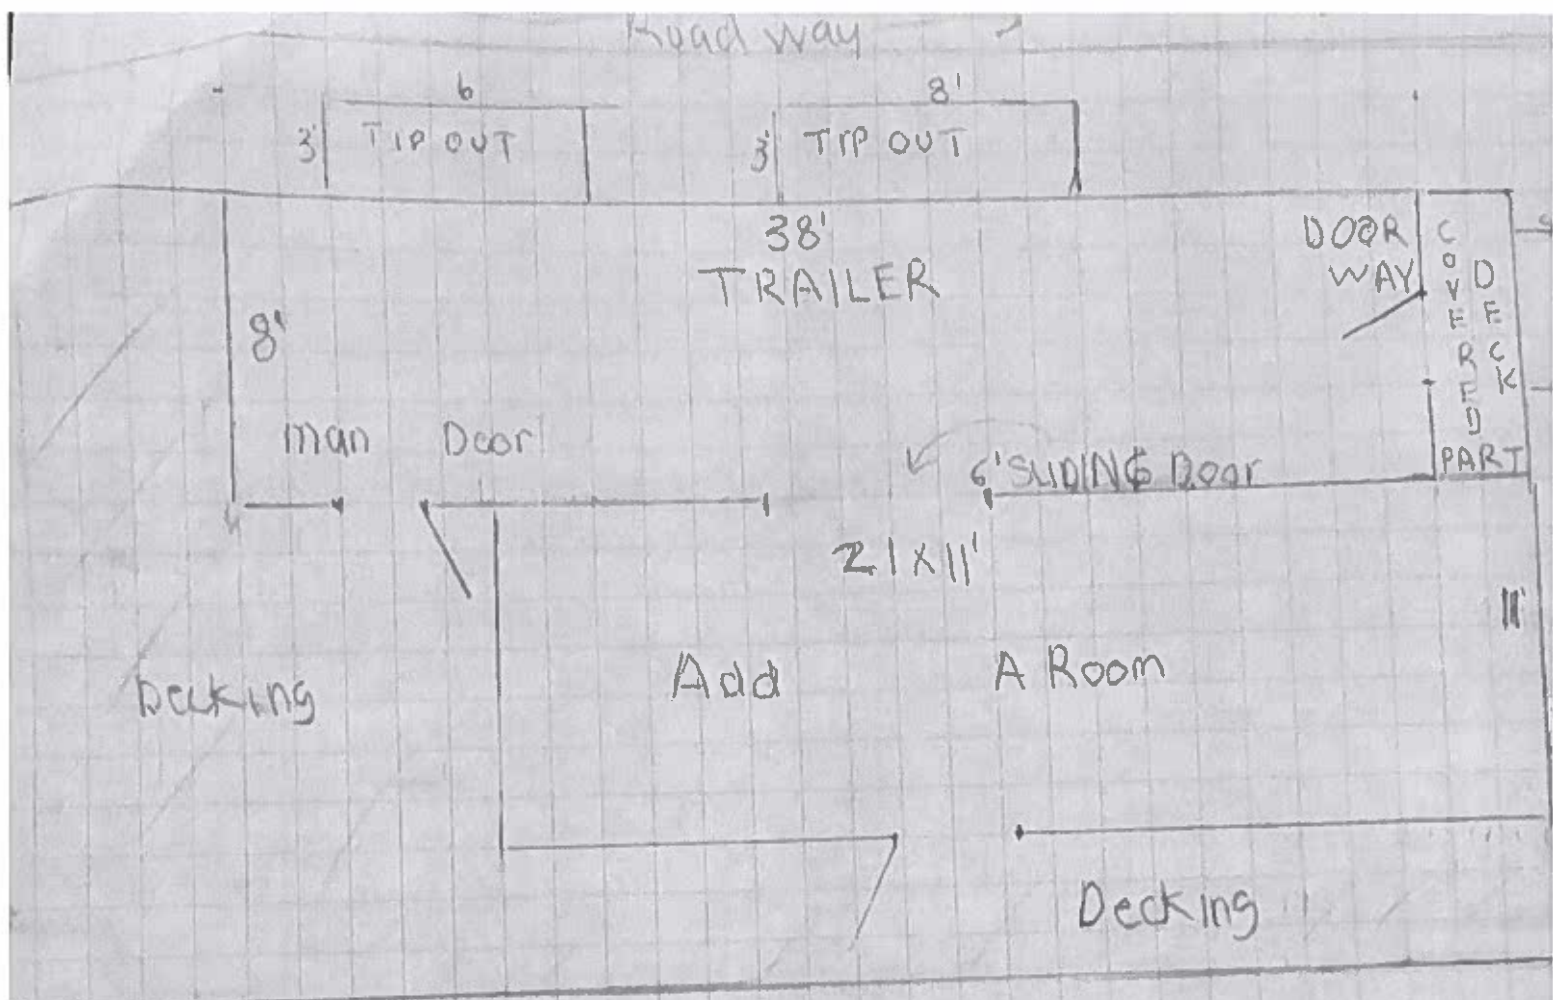 Road way
6
8'
3' TIP OUT
3' TIP OUT
38'
TRAILER
DOOR
WAY
COVERED
DECK
PART
8'
man Door
6' SLIDING Door
21 x 11'
11'
Add A Room
Decking
Decking